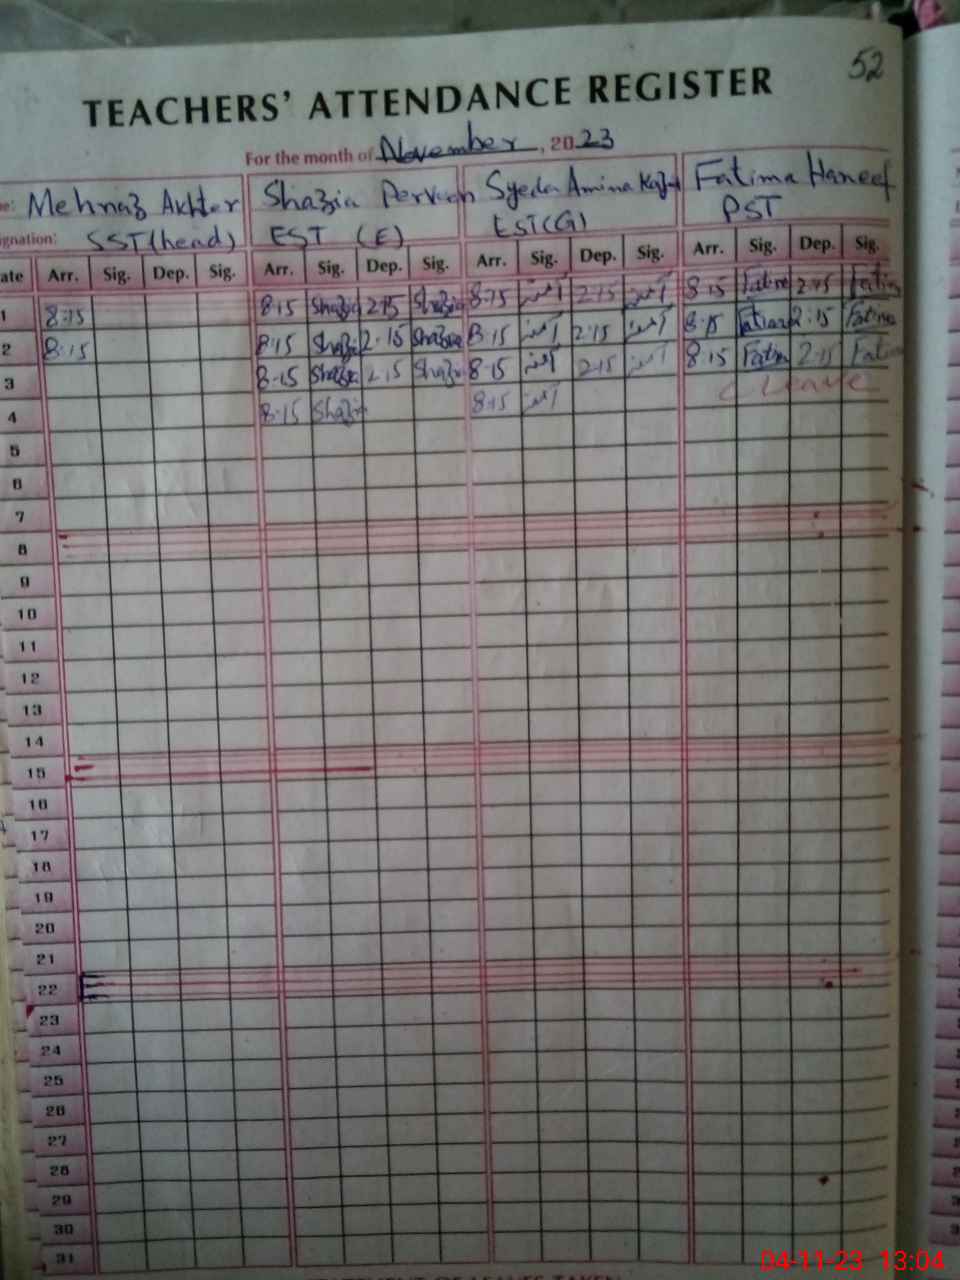 52
TEACHERS' ATTENDANCE REGISTER
For the month of November, 2023
Mehnaz Akhter Shazia Perveen Syeda Amina Fatima Haneef
gnation: SST (head) EST (E) EST (G) PST
ate Arr. Sig. Dep. Sig. Arr. Sig. Dep. Sig. Arr. Sig. Dep. Sig. Arr. Sig. Dep. Sig.
1 8:15 8:15 Shazia 2:15 Shazia 8:15 آمنہ 2:15 آمنہ 8:15 Fatima 2:15 Fatima
2 8:15 8:15 Shazia 2:15 Shazia 8:15 آمنہ 2:15 آمنہ 8:15 Fatima 2:15 Fatima
3 8:15 Shazia 2:15 Shazia 8:15 آمنہ 2:15 آمنہ 8:15 Fatima 2:15 Fatima
4 8:15 Shazia 8:15 آمنہ Leave
5
6
7
8
9
10
11
12
13
14
15
16
17
18
19
20
21
22
23
24
25
26
27
28
29
30
31
04-11-23 13:04